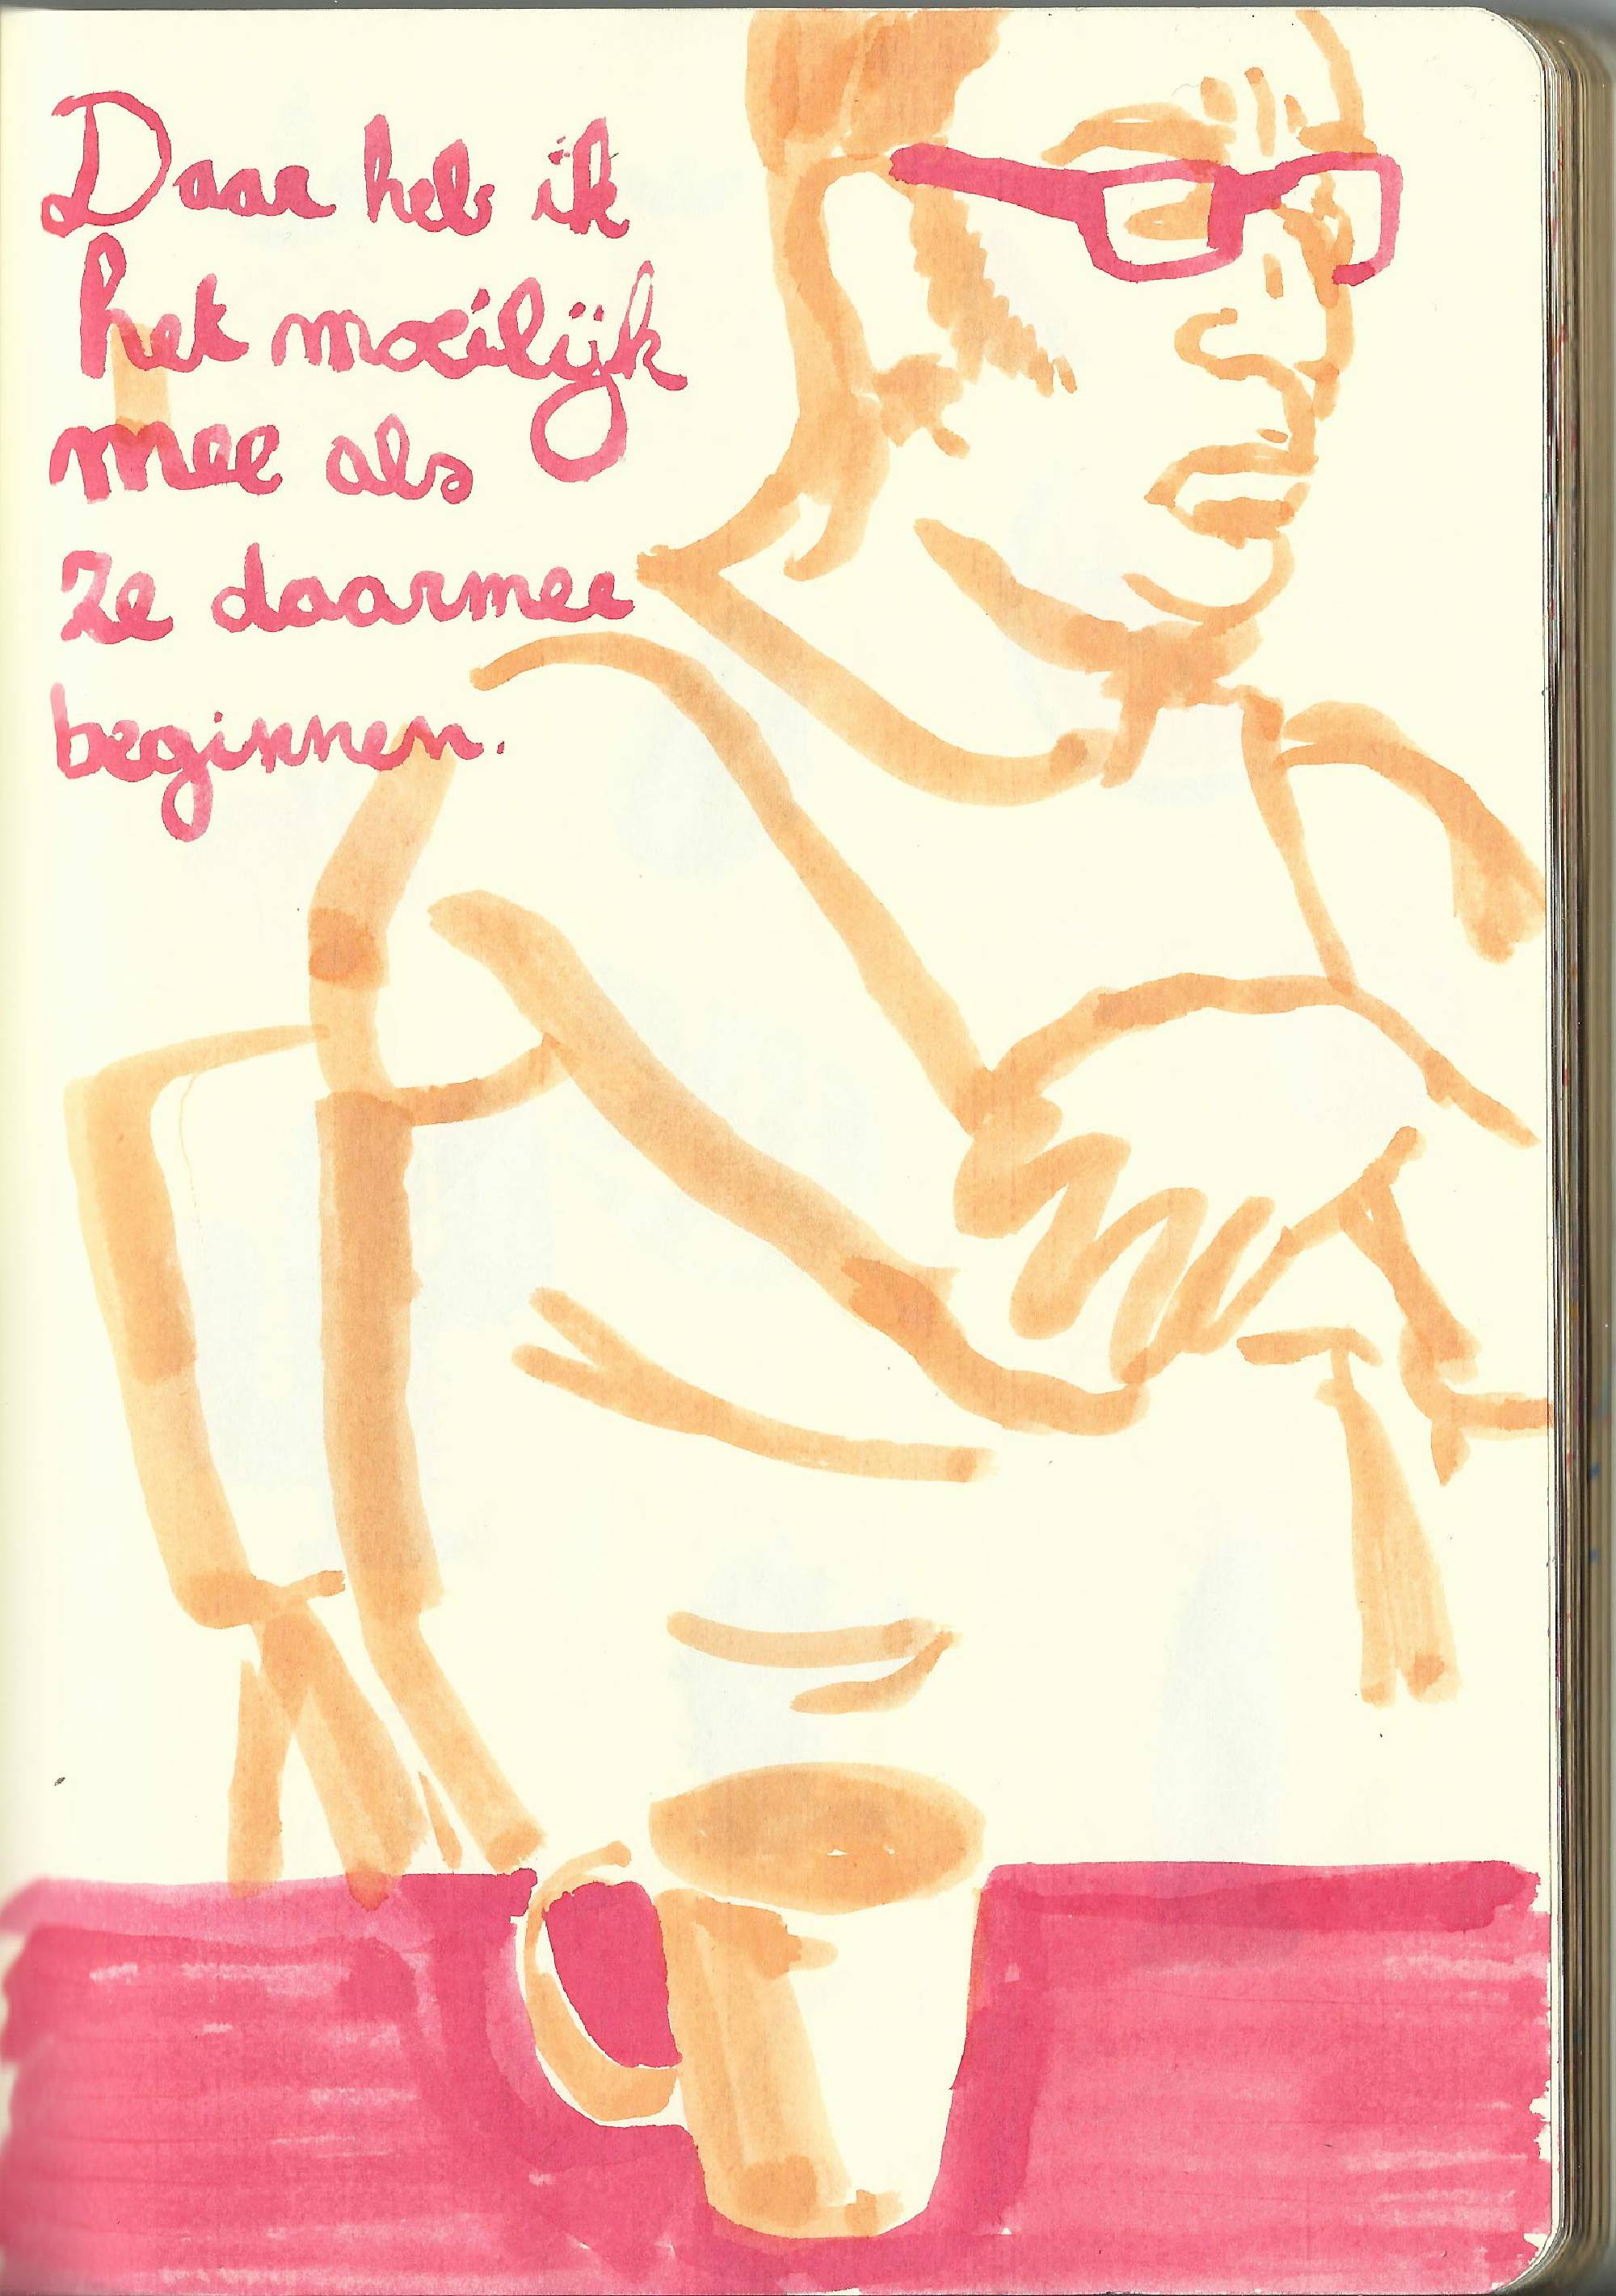 Daar heb ik
het moeilijk
mee als
ze daarmee
beginnen.